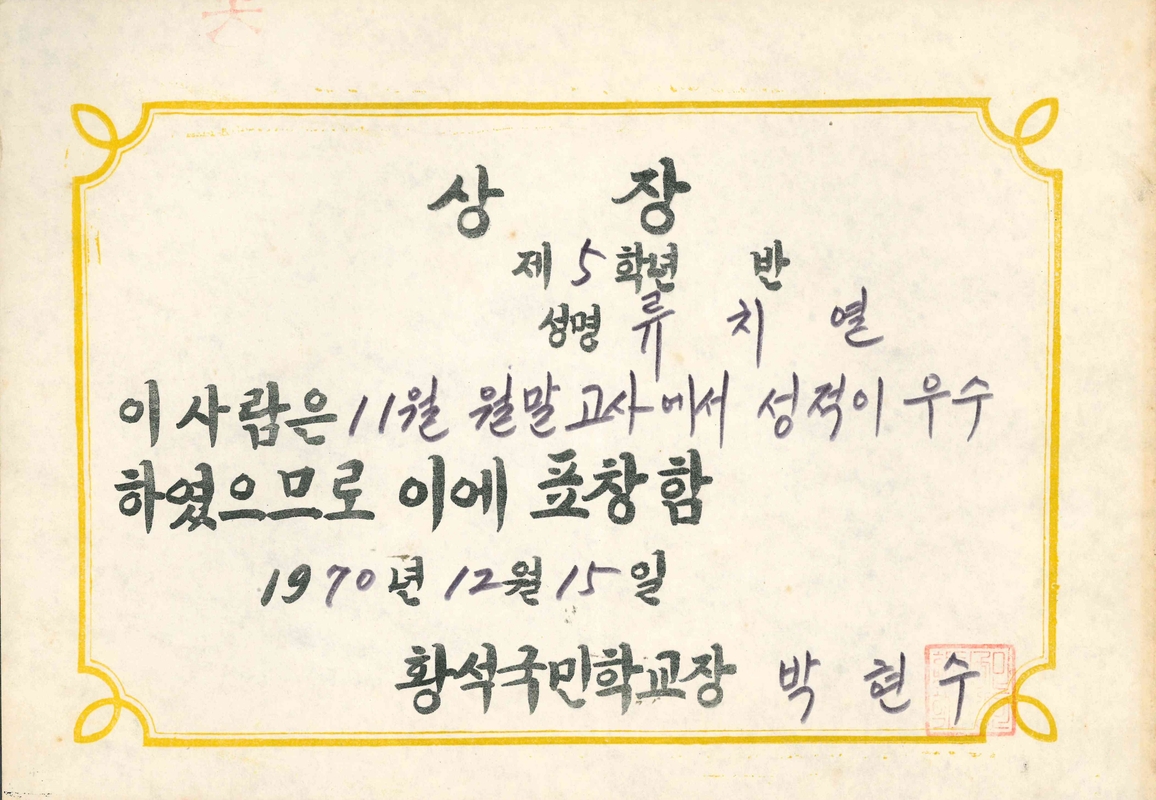 상 장
제 5 학년 반
성명 류 치 열
이 사람은 11월 월말 고사에서 성적이 우수
하였으므로 이에 표창함
1970년 12월 15일
황석국민학교장 박 현 수